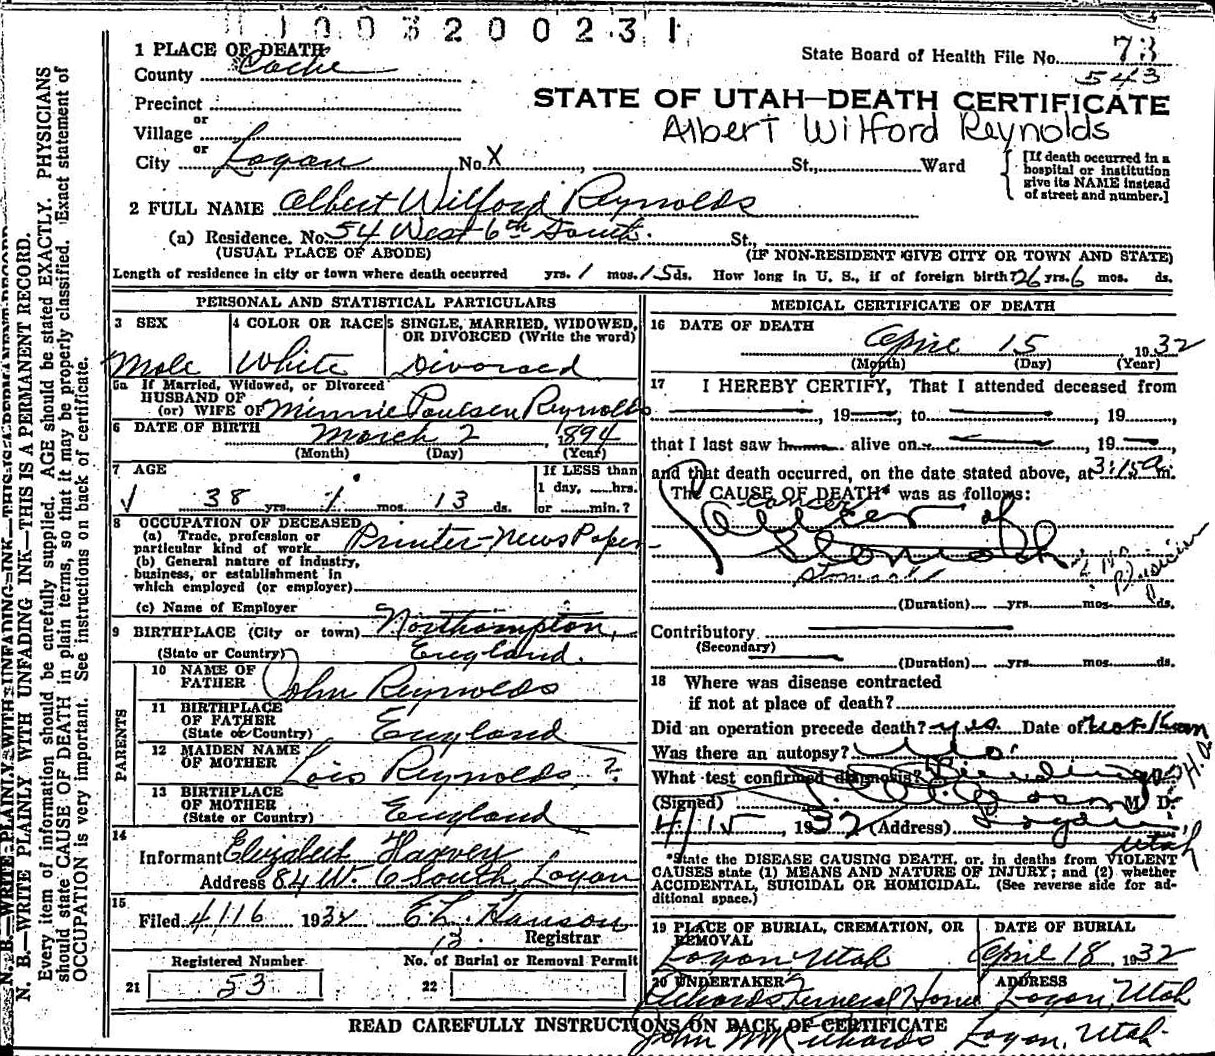 1003200231
1 PLACE OF DEATH
County Cache
State Board of Health File No. 73
543
Precinct
or
Village
or
City Logan No. X St., Ward
STATE OF UTAH—DEATH CERTIFICATE
Albert Wilford Reynolds
[If death occurred in a hospital or institution give its NAME instead of street and number.]
2 FULL NAME Albert Wilford Reynolds
(a) Residence. No. 54 West 6th South. St.,
(USUAL PLACE OF ABODE) (IF NON-RESIDENT GIVE CITY OR TOWN AND STATE)
Length of residence in city or town where death occurred yrs. 1 mos. 15 ds. How long in U. S., if of foreign birth? 26 yrs. 6 mos. ds.
PERSONAL AND STATISTICAL PARTICULARS
3 SEX
Male
4 COLOR OR RACE
White
5 SINGLE, MARRIED, WIDOWED, OR DIVORCED (Write the word)
Divorced
5a If Married, Widowed, or Divorced
HUSBAND OF
(or) WIFE OF Minnie Poulsen Reynolds
6 DATE OF BIRTH March 2, 1894
(Month) (Day) (Year)
7 AGE
38 yrs. 1 mos. 13 ds.
If LESS than
1 day, ......hrs.
or ......min.?
8 OCCUPATION OF DECEASED
(a) Trade, profession or
particular kind of work Printer-News Paper
(b) General nature of industry,
business, or establishment in
which employed (or employer)
(c) Name of Employer
9 BIRTHPLACE (City or town) Northampton,
(State or Country) England.
PARENTS
10 NAME OF
FATHER John Reynolds
11 BIRTHPLACE
OF FATHER
(State or Country) England
12 MAIDEN NAME
OF MOTHER Lois Reynolds ?
13 BIRTHPLACE
OF MOTHER
(State or Country) England
14
Informant Elizabeth Harvey
Address 84 W. 6 South Logan
15
Filed 4/16 1932 E.L. Hanson
13. Registrar
Registered Number
21 53
No. of Burial or Removal Permit
22
MEDICAL CERTIFICATE OF DEATH
16 DATE OF DEATH
April 15 1932
(Month) (Day) (Year)
17 I HEREBY CERTIFY, That I attended deceased from
, 19 , to , 19
that I last saw h alive on , 19
and that death occurred, on the date stated above, at 3:15 a m.
The CAUSE OF DEATH* was as follows:
cancer
of
Stomach
stomach
Physician
(Duration) yrs. mos. ds.
Contributory
(Secondary)
(Duration) yrs. mos. ds.
18 Where was disease contracted
if not at place of death?
Did an operation precede death? yes. Date of not known
Was there an autopsy? No.
What test confirmed diagnosis?
(Signed) M D.
4/15, 1932 (Address) Logan,
Utah
*State the DISEASE CAUSING DEATH, or, in deaths from VIOLENT
CAUSES state (1) MEANS AND NATURE OF INJURY; and (2) whether
ACCIDENTAL, SUICIDAL OR HOMICIDAL. (See reverse side for ad-
ditional space.)
19 PLACE OF BURIAL, CREMATION, OR
REMOVAL
Logan Utah
DATE OF BURIAL
April 18, 1932
20 UNDERTAKER
Richards Funeral Home
ADDRESS
Logan, Utah
READ CAREFULLY INSTRUCTIONS ON BACK OF CERTIFICATE
John M Richards Logan, Utah.
N. B.—WRITE PLAINLY WITH UNFADING INK—THIS IS A PERMANENT RECORD.
Every item of information should be carefully supplied. AGE should be stated EXACTLY. PHYSICIANS
should state CAUSE OF DEATH in plain terms, so that it may be properly classified. Exact statement of
OCCUPATION is very important. See instructions on back of certificate.